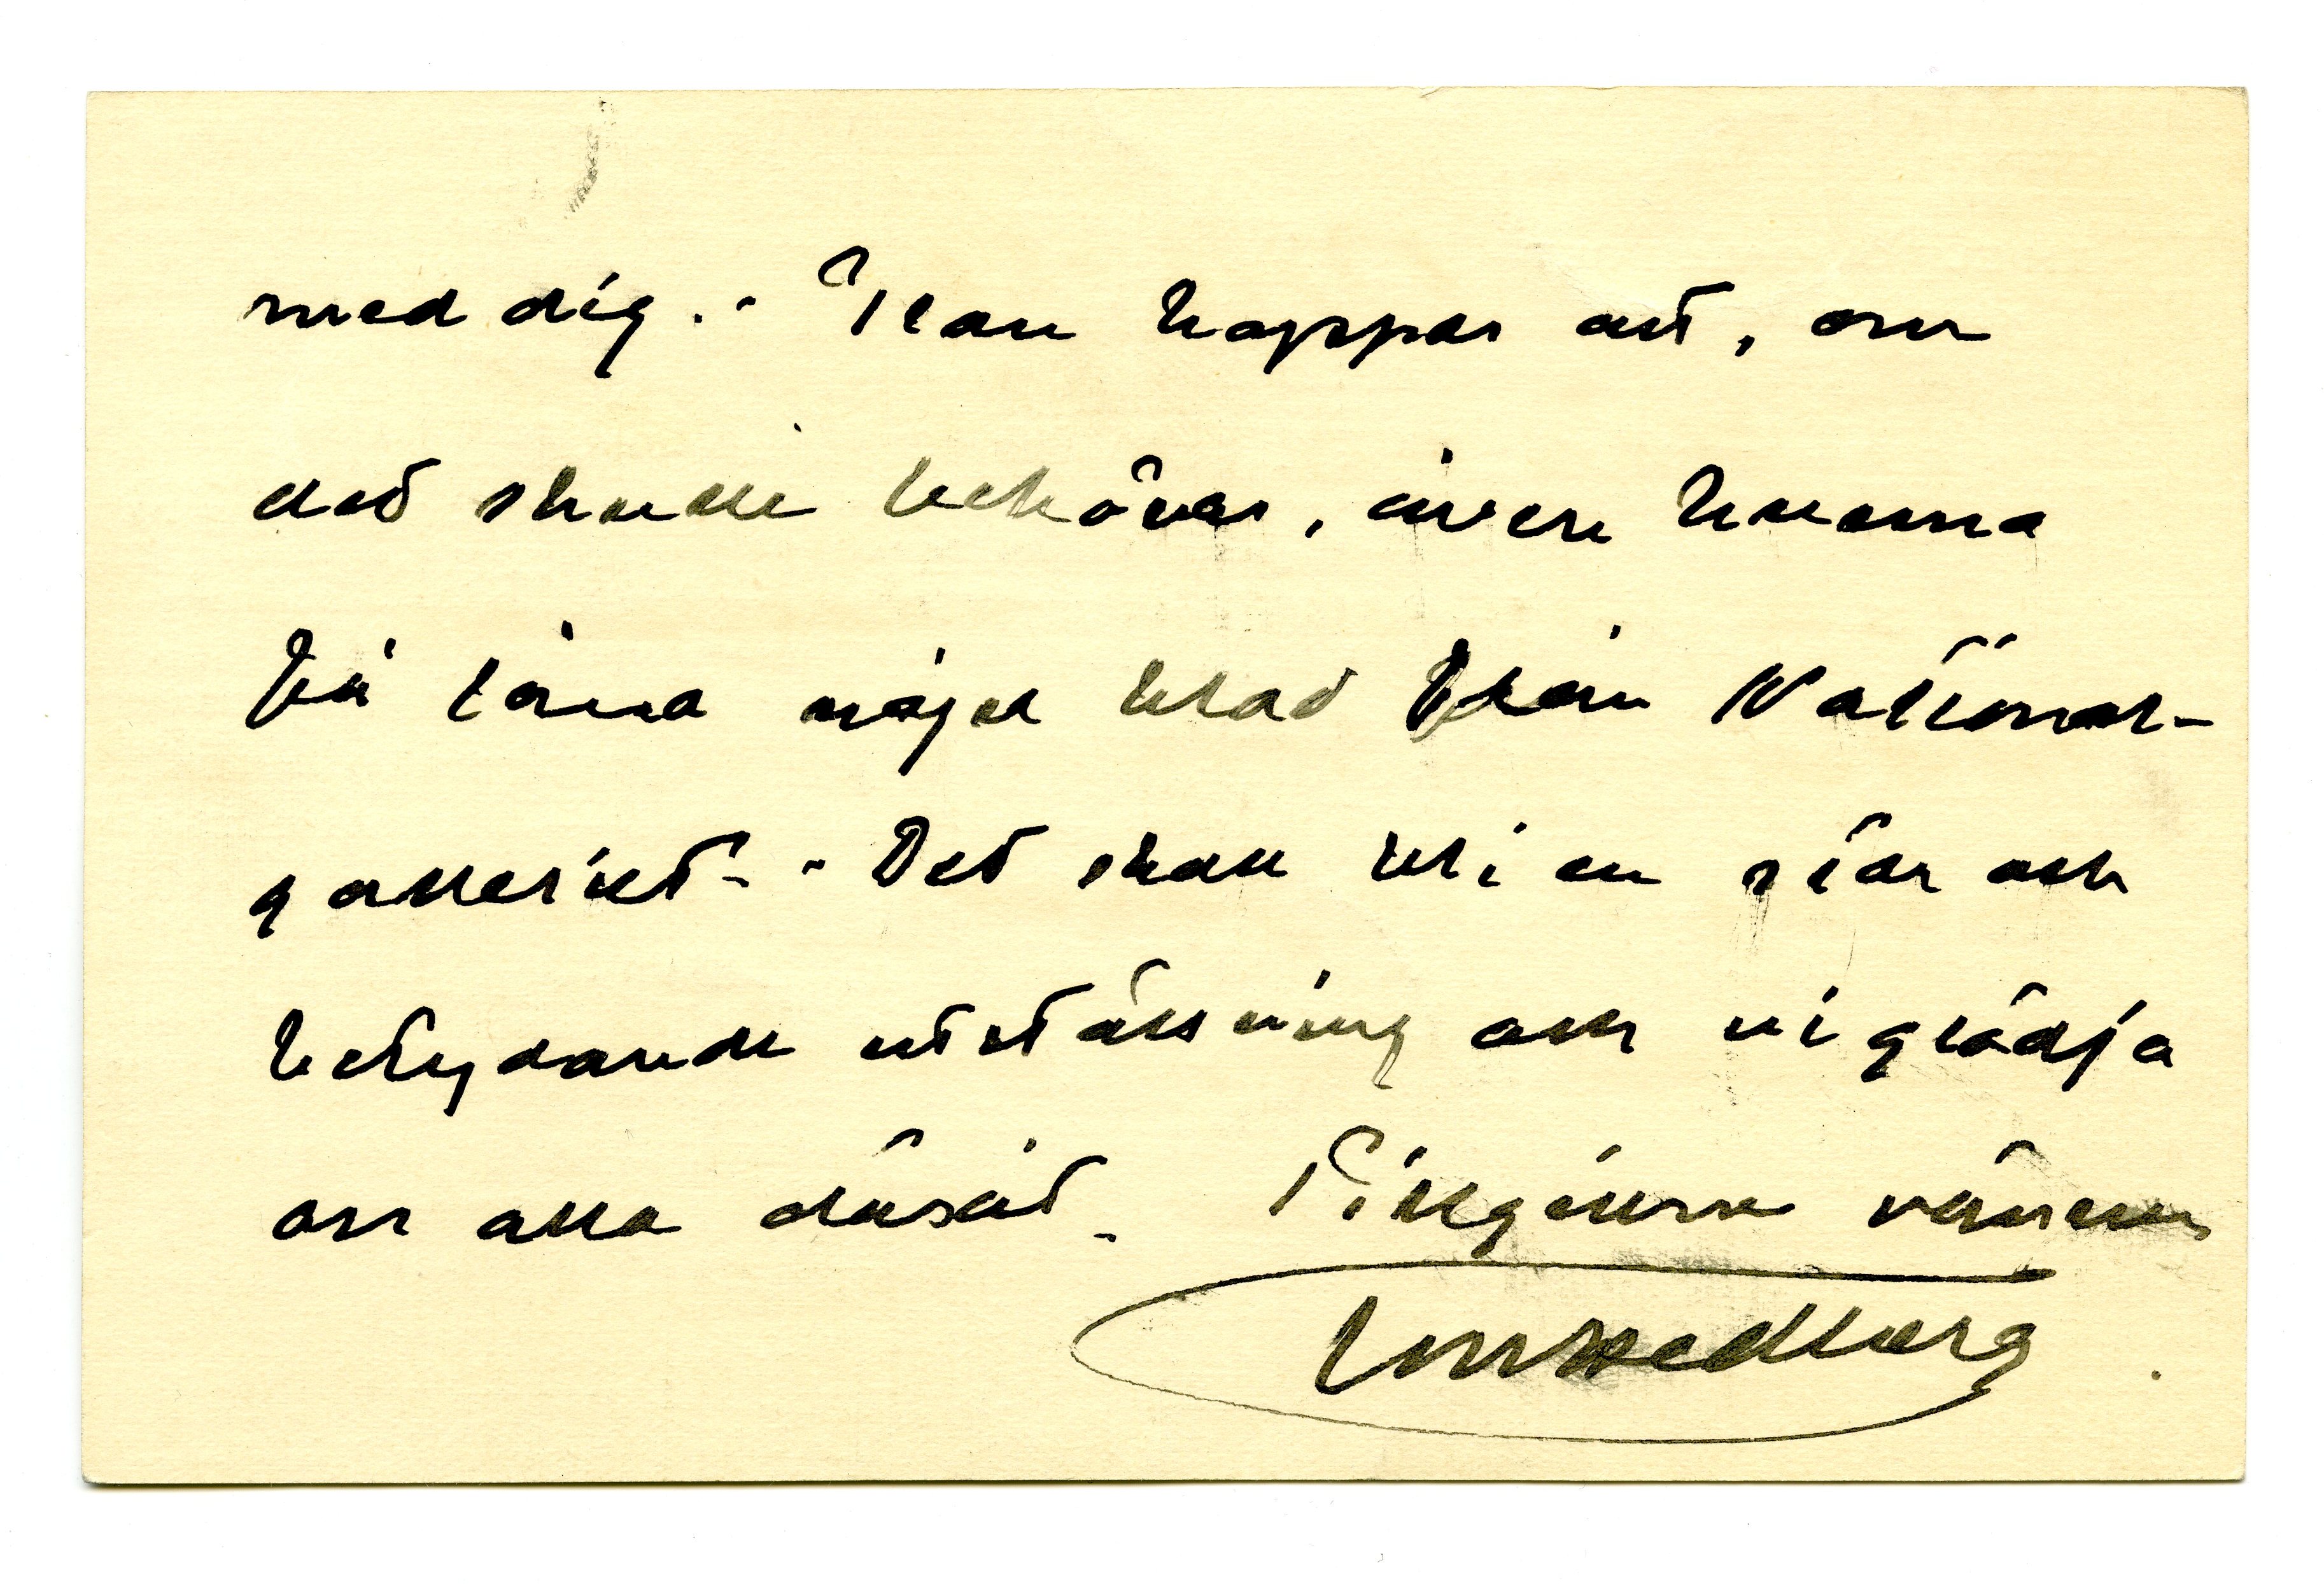 med dig. - Han hoppas att, om
det skulle behövas, även kunna
få låna något blad från National-
galleriet. - Det skall bli en stor och
betydande utställning och vi glädja
oss alla däråt. Tillgifne vännen